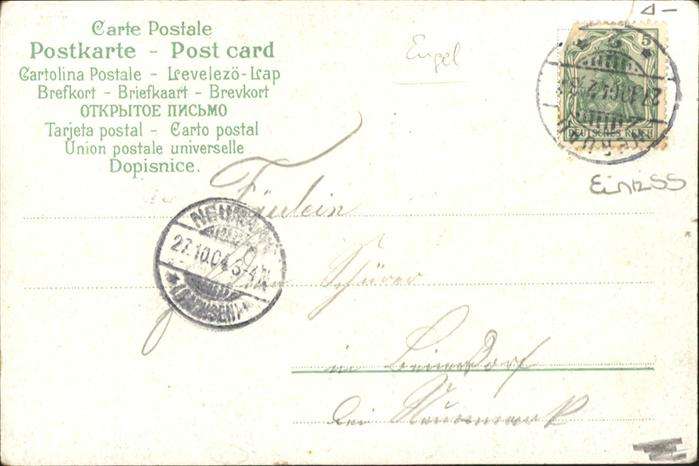 Carte Postale
Postkarte - Post card
Cartolina Postale - Levelezö-Lap
Brefkort - Briefkaart - Brevkort
ОТКРЫТОЕ ПИСЬМО
Tarjeta postal - Carto postal
Union postale universelle
Dopisnice.
Engel
5
DEUTSCHES REICH
Fräulein
NEUMARK
27.10.04.3-4
(SACHSEN)
Schürer
in
bei Neumark